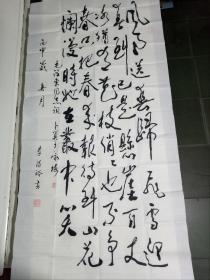 风雨送春歸飛雪迎
春到已是懸崖百丈
冰犹有花枝俏俏也不争
春只把春来報待到山花
爛漫時她在丛中笑
毛泽东同志词卜算子咏梅
丙申歲 月
李